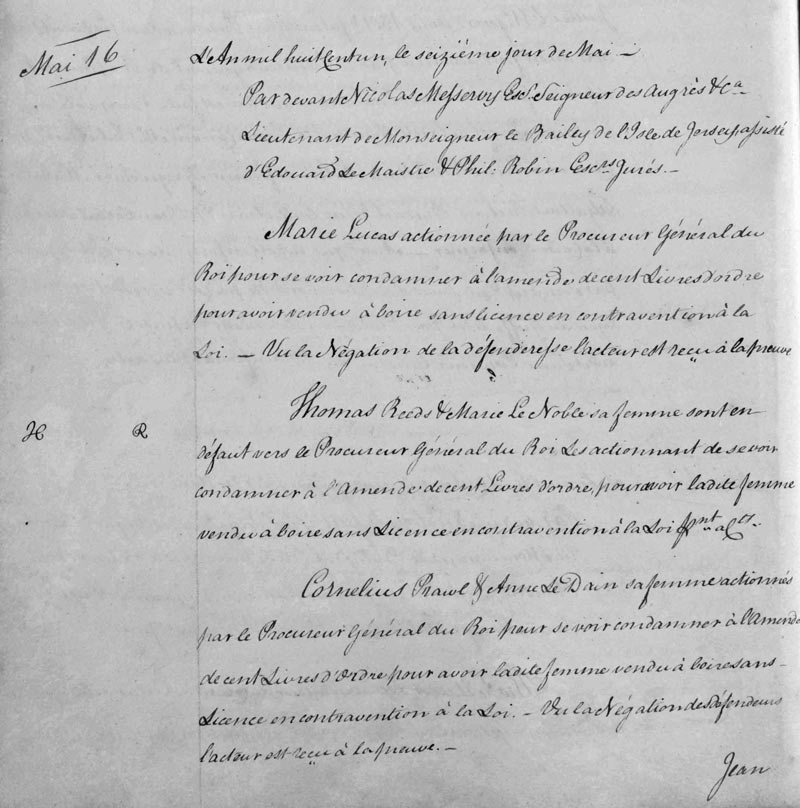 Mai 16
L'An mil huit Cent un, le seizième jour de Mai –
Par devant Nicolas Messervy Escr. Seigneur des Augrès &Ca
Lieutenant de Monseigneur le Bailly de l'Isle de Jersey, assisté
d'Edouard Le Maistre & Phil: Robin Escrs Jurés. –
Marie Lucas actionnée par le Procureur Général du
Roi pour se voir condamner à l'amende de cent Livres d'ordre
pour avoir vendu à boire sans licence en contravention à la
Loi. – Vu la Négation de la défenderesse l'acteur est reçu à la preuve
Thomas Reeds & Marie Le Noble sa femme sont en
H R
défaut vers le Procureur Général du Roi Les actionnant de se voir
condamner à l'Amende de cent Livres d'ordre, pour avoir ladite femme
vendu à boire sans Licence en contravention à la Loi
Cornelius Prawl & Anne Le Dain sa femme actionnés
par le Procureur Général du Roi pour se voir condamner à l'Amende
de cent Livres d'Ordre pour avoir ladite femme vendu à boire sans –
Licence en contravention à la Loi. – Vu la Négation des défendeurs
l'acteur est reçu à la preuve. –
Jean